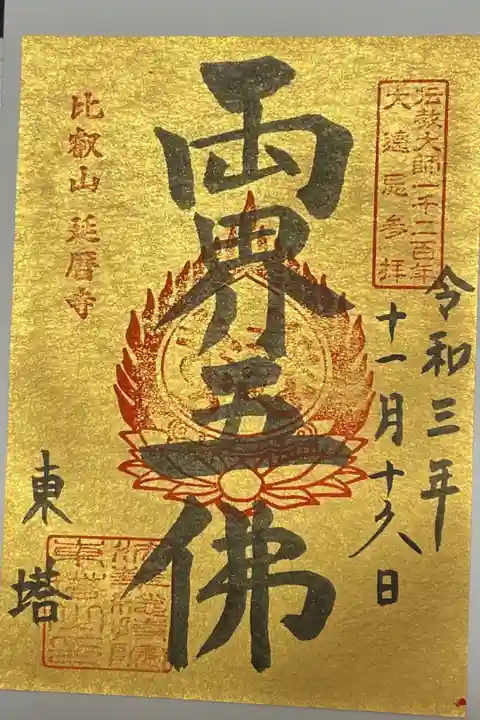 伝教大師一千二百年
大遠忌参拝
令和三年
十一月十六日
両界五佛
比叡山 延暦寺
東塔